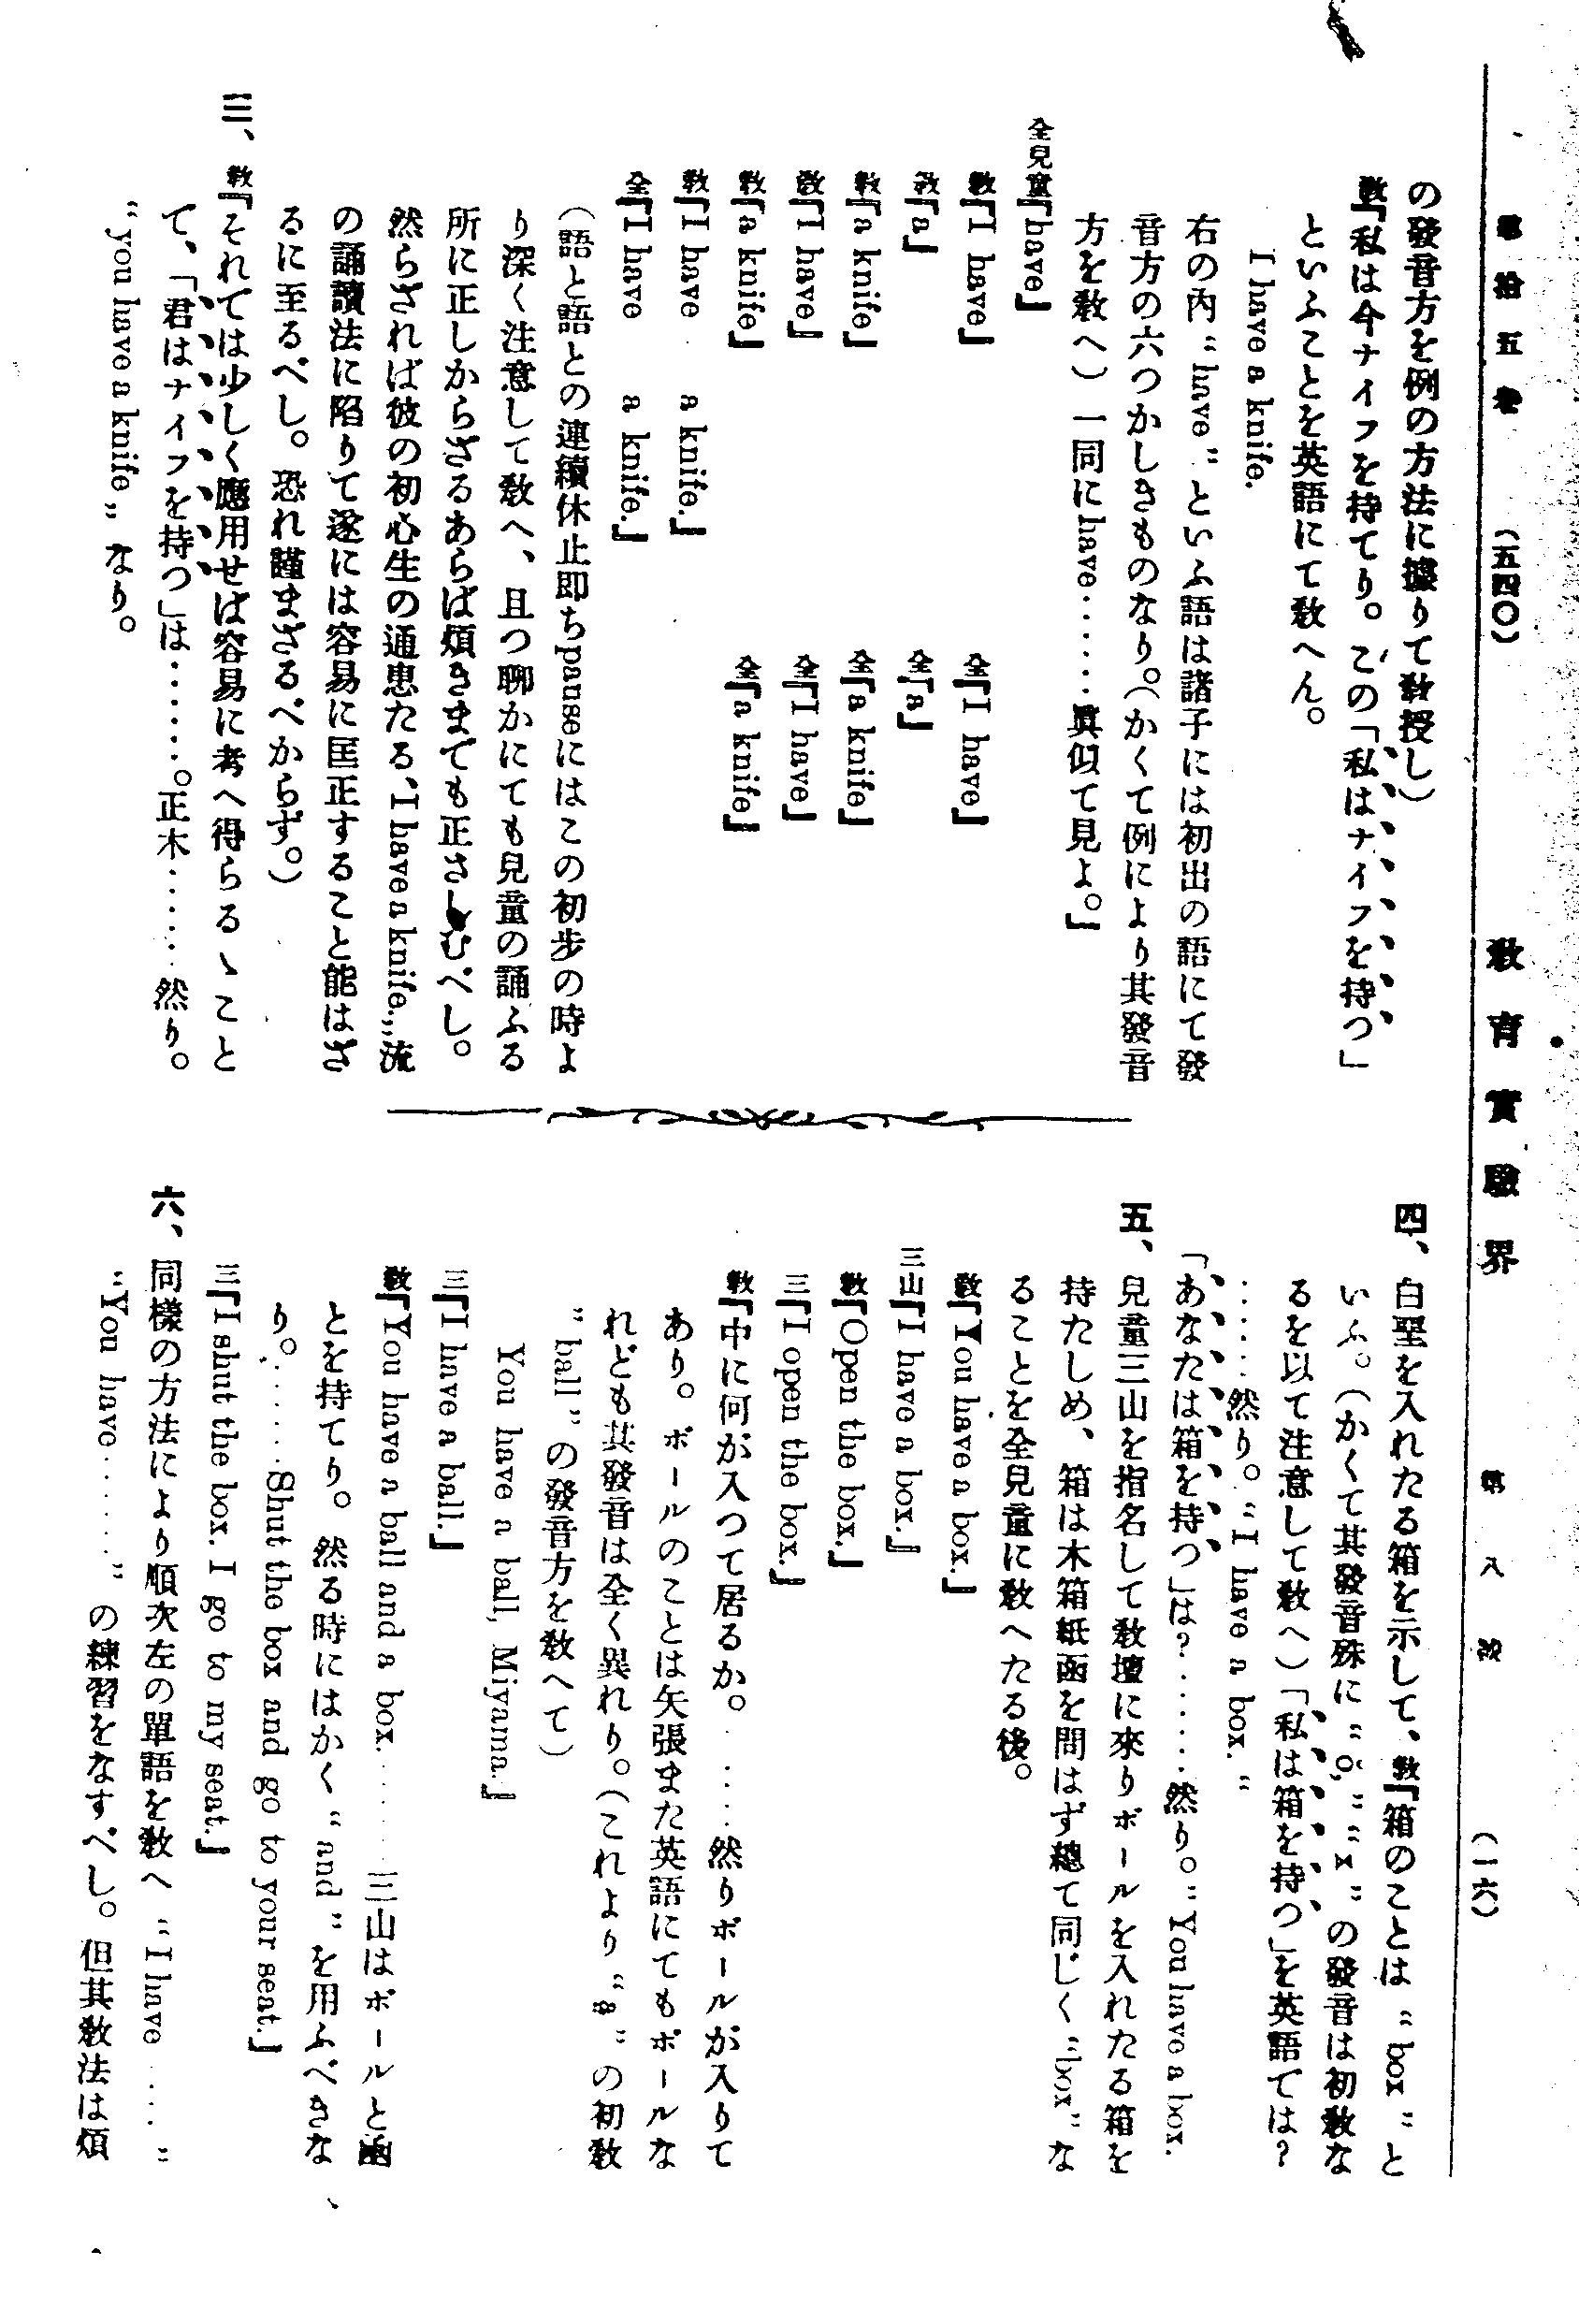 第拾五卷 （五四〇） 敎育實驗界 第八號 （一六）
の發音方を例の方法に據りて敎授し）
敎『私は今ナイフを持てり。この「私はナイフを持つ」
といふことを英語にて敎へん。
I have a knife.
右の內“have”といふ語は諸子には初出の語にて發
音方の六つかしきものなり。（かくて例により其發音
方を敎へ）一同にhave‥‥‥眞似て見よ。』
全兒童『have』
敎『I have』 全『I have』
敎『a』 全『a』
敎『a knife』 全『a knife』
敎『I have』 全『I have』
敎『a knife』 全『a knife』
敎『I have a knife.』
全『I have a knife.』
（語と語との連續休止卽ちpauseにはこの初步の時よ
り深く注意して敎へ、且つ聊かにても兒童の誦ふる
所に正しからざるあらば煩きまでも正さしむべし。
然らざれば彼の初心生の通患たる、I have a knife.,,流
の誦讀法に陷りて遂には容易に匡正すること能はざ
るに至るべし。恐れ謹まざるべからず。）
三、敎『それでは少しく應用せば容易に考へ得らるゝこと
て、「君はナイフを持つ」は‥‥‥。正木‥‥‥然り。
“you have a knife„なり。
四、白堊を入れたる箱を示して、敎『箱のことは“box”と
いふ。（かくて其發音殊に“ŏ,”“x”の發音は初敎な
るを以て注意して敎へ）「私は箱を持つ」を英語では？
‥‥‥然り。“I have a box.“
「あなたは箱を持つ」は？‥‥‥然り。“You have a box.
五、兒童三山を指名して敎壇に來りボールを入れたる箱を
持たしめ、箱は木箱紙函を問はず總て同じく“box”な
ることを全兒童に敎へたる後。
敎『You have a box.』
三山『I have a box.』
敎『Open the box.』
三『I open the box.』
敎『中に何が入つて居るか。‥‥‥然りボールが入りて
あり。ボールのことは矢張また英語にてもボールな
れども其發音は全く異れり。（これより“a”の初敎
“ball”の發音方を敎へて）
You have a ball, Miyama.』
三『I have a ball.』
敎『You have a ball and a box.‥‥‥三山はボールと函
とを持てり。然る時にはかく“and”を用ふべきな
り。‥‥‥Shut the box and go to your seat.』
三『I shut the box. I go to my seat.』
六、同樣の方法により順次左の單語を敎へ“I have‥‥”
“You have‥‥‥”の練習をなすべし。但其敎法は煩